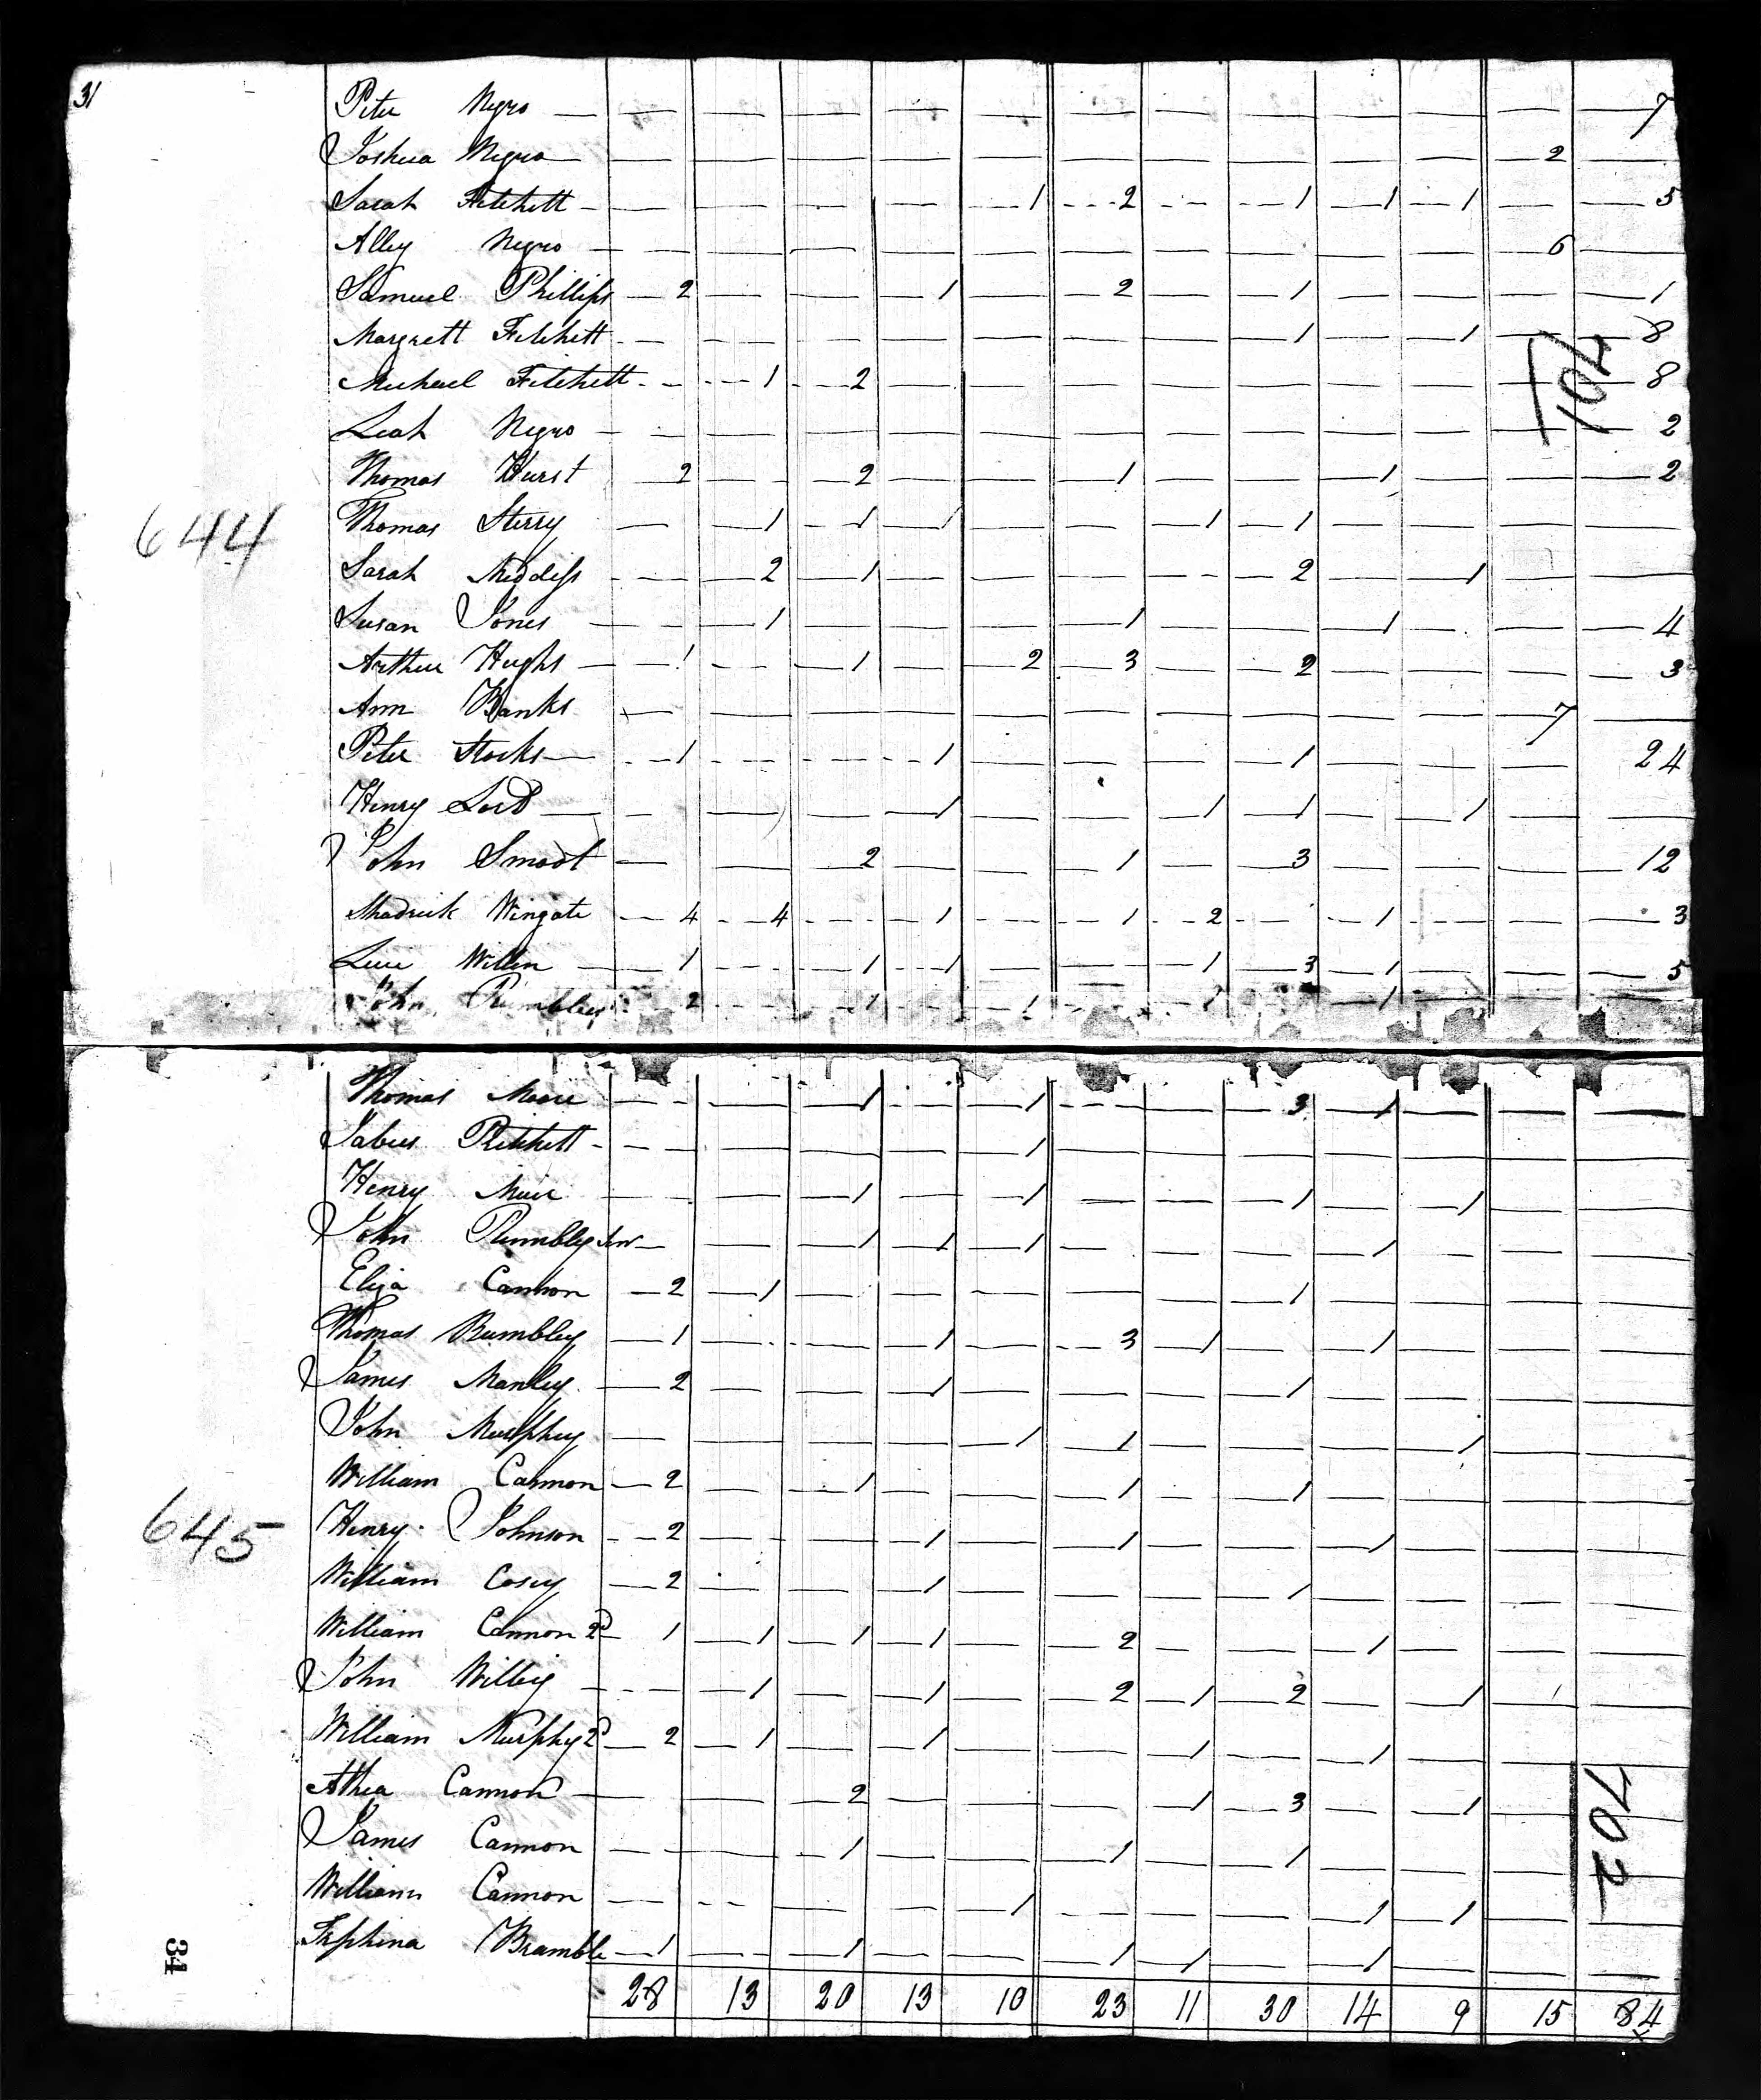 31
Peter Negro — — — — — — — — — — — 7
Joshua Negro — — — — — — — — — — 2 —
Sarah Fitchett — — — — 1 2 — 1 1 1 — 5
Alley Negro — — — — — — — — — — 6 —
Samuel Phillips 2 — — 1 — 2 — 1 — — — 1
Margrett Fitchett — — — — — — — 1 — 1 — 8
Michael Fitchett — 1 2 — — — — — — — — 8
701
Leah Negro — — — — — — — — — — — 2
Thomas Hurst 2 — 2 — — 1 — — 1 — — 2
644
Thomas Sterry — 1 1 1 — — 1 1 — — — —
Sarah — 2 1 — — — — 2 — 1 — —
Susan Jones — 1 — — — 1 — — 1 — — 4
Arthur Hughs 1 — 1 — 2 3 — 2 — — — 3
Ann Banks — — — — — — — — — — 7 —
Peter Stocks 1 — — 1 — — — 1 — — — 24
Henry Lord — — — 1 — — 1 1 — 1 — —
John Smoot — — 2 — — 1 — 3 — — — 12
Shadrick Wingate 4 4 — 1 — 1 2 — 1 — — 3
Willen 1 — 1 1 — — 1 3 1 — — 5
John 2 — 1 — 1 — 1 — 1 — — —
Thomas Moore — — 1 — 1 — — 3 1 — — —
Pritchett — — — — 1 — — — — — — —
Henry — — 1 — 1 — — 1 — 1 — —
John — — 1 1 1 — — — 1 — — —
Eliza Cannon 2 1 — — — — — 1 — — — —
Thomas Bumbley 1 — — 1 — 3 1 — 1 — — —
James Manley 2 — — 1 — — — 1 — — — —
John Murphey — — — — 1 1 — — — 1 — —
William Cannon 2 — 1 — — 1 — 1 — — — —
645
Henry Johnson 2 — — 1 — 1 — — 1 — — —
William Cosey 2 — — 1 — — — 1 — — — —
William Cannon 2d 1 1 1 1 — 2 — — 1 — — —
John Willey — 1 — 1 — 2 1 2 — 1 — —
William Murphy 2d 2 1 — 1 — — 1 — 1 — — —
Cannon — — 2 — — — 1 3 — 1 — —
702
James Cannon — — 1 — — 1 — 1 — — — —
William Cannon — — — — 1 — — — 1 1 — —
Bramble 1 — 1 — — 1 1 — 1 — — —
34
28 13 20 13 10 23 11 30 14 9 15 84